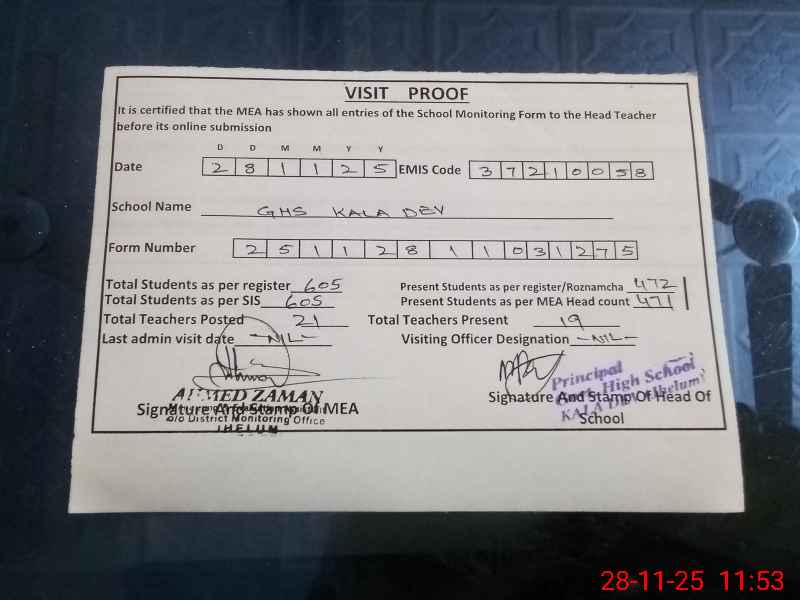 VISIT PROOF
It is certified that the MEA has shown all entries of the School Monitoring Form to the Head Teacher
before its online submission
D D M M Y Y
Date 2 8 1 1 2 5 EMIS Code 3 7 2 1 0 0 5 8
School Name GHS KALA DEV
Form Number 2 5 1 1 2 8 1 1 0 3 1 2 7 5
Total Students as per register 605 Present Students as per register/Roznamcha 472
Total Students as per SIS 605 Present Students as per MEA Head count 471
Total Teachers Posted 21 Total Teachers Present 19
Last admin visit date -NIL- Visiting Officer Designation -NIL-
Principal
High School
KALA DEV (Jhelum)
AHMED ZAMAN
Signature And Stamp Of MEA Signature And Stamp Of Head Of
School
O/o District Monitoring Office
JHELUM
28-11-25 11:53